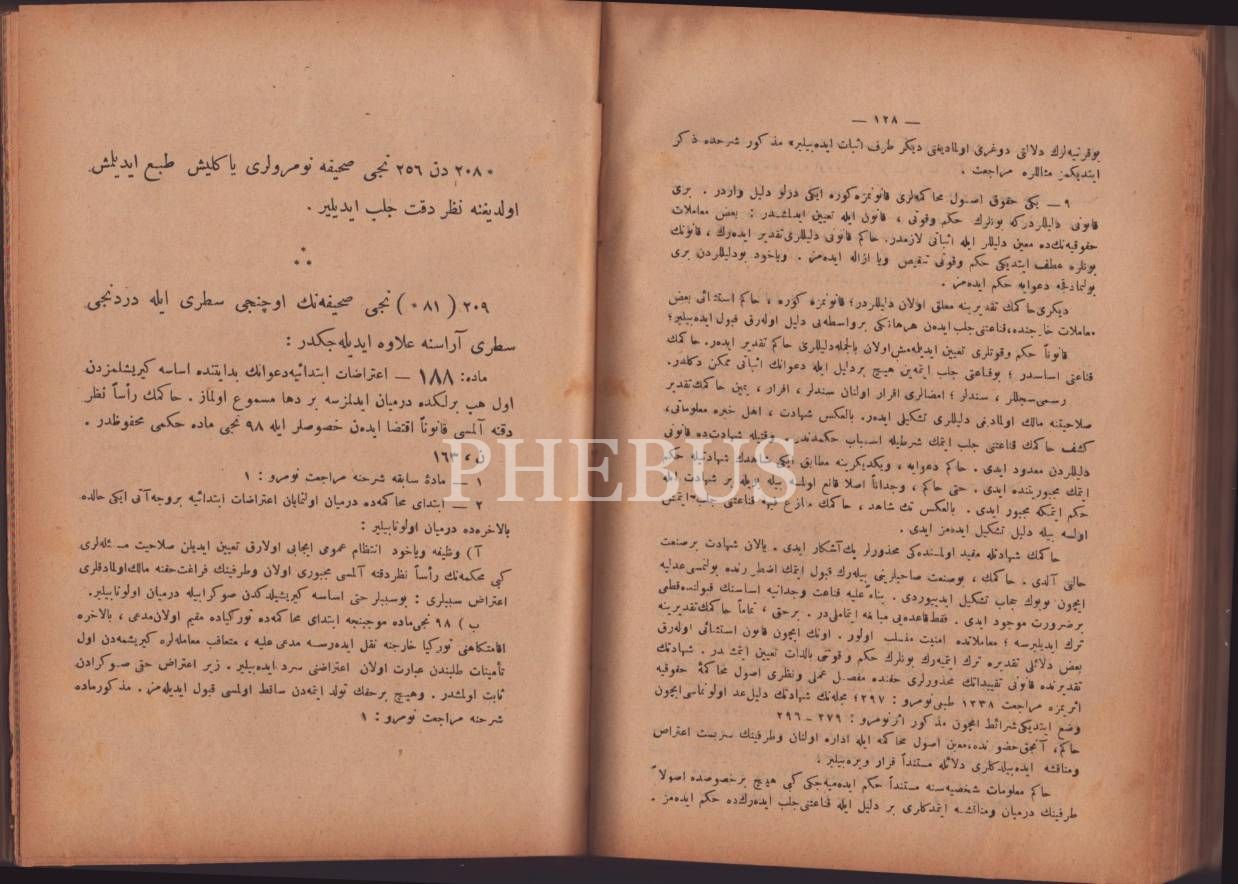 — ١٢٨ —
بوقرینه‌لرك دلالتی دوغری اولمادیغنی دیكر طرف اثبات ایده‌بیلیر» مذكور شرحده ذكر
ایتدیكمز مثاللره مراجعت .
٩ — یكی حقوق اصول محاكمه‌لری قانونمزه‌كوره ایكی درلو دلیل واردر . بری
قانونی دلیللردركه بونلرك حكم وقوتی ، قانون ایله تعیین ایدلمشدر : بعض معاملات
حقوقیه‌نك‌ده معین دلیللر ایله اثباتی لازمدر. حاكم قانونی دلیللری تقدیر ایده‌رك ، قانونك
بونلره عطف ایتدیكی حكم وقوتی تنقیص ویا ازاله ایده‌مز . ویاخود بودلیللردن بری
بولنمادقجه دعوایه حكم ایده‌مز .
دیكری حاكمك تقدیرینه معلق اولان دلیللردر؛ قانونمزه كوره ، حاكم استثنائی بعض
معاملات خارجنده، قناعتنی جلب ایدن هرهانكی برواسطه‌یی دلیل اوله‌رق قبول ایده‌بیلیر؛
قانوناً حكم وقوتلری تعیین ایدیله‌مه‌مش اولان بالجمله دلیللری حاكم تقدیر ایده‌ر. حاكمك
قناعتی اساسدر ؛ بوقناعتی جلب ایتمه‌ین هیچ بردلیل ایله دعوانك اثباتی ممكن دكلدر.
رسمی سجللر ، سندلر ؛ امضالری اقرار اولنان سندلر ، اقرار ، یمین حاكمك تقدیر
صلاحیتنه مالك اولمادیغی دلیللری تشكیل ایده‌ر. بالعكس شهادت ، اهل خبره معلوماتی،
كشف حاكمك قناعتنی جلب ایتمك شرطیله اسباب حكمدندر. وقتیله شهادت‌ده قانونی
دلیللردن معدود ایدی . حاكم دعوایه ، ویكدیكرینه مطابق ایكی شاهدك شهادتیله حكم
ایتمك مجبوریتنده ایدی . حتی حاكم ، وجداناً اصلا قانع اولمسه بیله بویله بر شهادت ایله
حكم ایتمكه مجبور ایدی . بالعكس تك شاهد ، حاكمك قناعتنی جلب ایتمش
اولسه بیله دلیل تشكیل ایده‌مز ایدی .
حاكمك شهادتله مقید اولمسنده‌كی محذورلر پك آشكار ایدی . یالان شهادت برصنعت
حالنی آلدی . حاكمك ، بوصنعت صاحبلرینی بیله‌رك قبول ایتمك اضطرارنده بولنمسی عدلیه
ایچون بویوك حجاب تشكیل ایدییوردی . بناءً علیه قناعت وجدانیه اساسنك قبولنده قطعی
برضرورت موجود ایدی . فقط قاعده‌یی مبالغه ایتمه‌ملی‌در . برحق ، تماماً حاكمك تقدیرینه
ترك ایدیلیرسه ؛ معاملاتده امنیت منسلب اولور . اونك ایچون قانون استثنائی اوله‌رق
بعض دلائلی تقدیره ترك ایتمیه‌رك بونلرك حكم وقوتنی بالذات تعیین ایتمشدر . شهادتك
تقدیرنده قانونی تقییداتك محذورلری حقنده مفصل عملی ونظری اصول محاكمهٔ حقوقیه
اثریمزه مراجعت ١٢٣٨ طبعی نومرو : ٢٩٧؛ مجله‌نك شهادتك دلیل عد اولونماسی ایچون
وضع ایتدیكی شرائط ایچون مذكور اثر نومرو : ٢٧٩ـ٢٩٦
حاكم، آنجق حضورنده، معین اصول محاكمه ایله اداره اولنان وطرفینك سربست اعتراض
ومناقشه ایده‌بیلدكلری دلائله مستنداً قرار ویره‌بیلیر .
حاكم معلومات شخصیه‌سنه مستنداً حكم ایده‌میه‌جكی كبی هیچ برخصوصده اصولاً
طرفینك درمیان ومناقشه ایتمدكلری بر دلیل ایله قناعتنی جلب ایده‌رك‌ده حكم ایده‌مز .
٢٠٨ دن ٢٥٦ نجی صحیفه نومرولری یاكلیش طبع ایدیلمش
اولدیغنه نظر دقت جلب ایدیلیر .
٢٠٩ ( ٠٨١ ) نجی صحیفه‌نك اوچنجی سطری ایله دردنجی
سطری آراسنه علاوه ایدیله‌جكدر :
ماده: ١٨٨ — اعتراضات ابتدائیه دعوانك بدایتنده اساسه كیریشلمزدن
اول هپ برلكده درمیان ایدلمزسه بر دها مسموع اولماز . حاكمك رأساً نظر
دقته آلمسی قانوناً اقتضا ایده‌ن خصوصلر ایله ٩٨ نجی ماده حكمی محفوظدر .
ن ، ١٦٣
١ — مادهٔ سابقه شرحنه مراجعت نومرو : ١
٢ — ابتدای محاكمه‌ده درمیان اولنمایان اعتراضات ابتدائیه بروجه‌آتی ایكی حالده
بالاخره‌ده درمیان اولونابیلیر :
آ) وظیفه ویاخود انتظام عمومی ایجابی اولارق تعیین ایدیلن صلاحیت مسئله‌لری
كبی محكمه‌نك رأساً نظردقته آلمسی مجبوری اولان وطرفینك فراغت حقنه مالك اولمادقلری
اعتراض سببلری : بوسببلر حتی اساسه كیریشیلدكدن صوكرا بیله درمیان اولونابیلیر.
ب ) ٩٨ نجی ماده موجبنجه ابتدای محاكمه‌ده توركیاده مقیم اولان مدعی ، بالاخره
اقامتكاهنی توركیا خارجنه نقل ایده‌رسه مدعی علیه ، متعاقب معامله‌لره كیریشمه‌دن اول
تأمینات طلبندن عبارت اولان اعتراضنی سرد ایده‌بیلیر . زیر اعتراض حق صوكرادن
ثابت اولمشدر . وهیچ برحقك تولد ایتمه‌دن ساقط اولمسی قبول ایدیله‌مز . مذكور ماده
شرحنه مراجعت نومرو : ١
PHEBUS